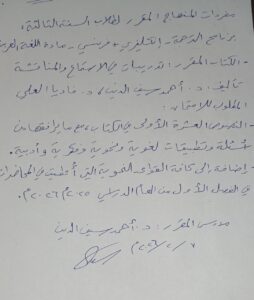 مفردات المنهاج المقرر لطلاب السنة الثالثة،
برنامج الترجمة - إنكليزي + فرنسي - مادة اللغة العربية
- الكتاب المقرر: التدريبات في الاستماع والمناقشة
تأليف: د. أحمد سيف الدين، د. فاديا العلي
المطلوب للامتحان:
- النصوص العشرة الأولى في الكتاب، مع ما يرافقها من
أسئلة وتطبيقات لغوية ونحوية وفكرية وأدبية.
- إضافة إلى كافة القواعد النحوية التي أعطيت في المحاضرات
في الفصل الأول من العام الدراسي ٢٠٢٥/٢٠٢٦م.
مدرس المقرر: د. أحمد سيف الدين